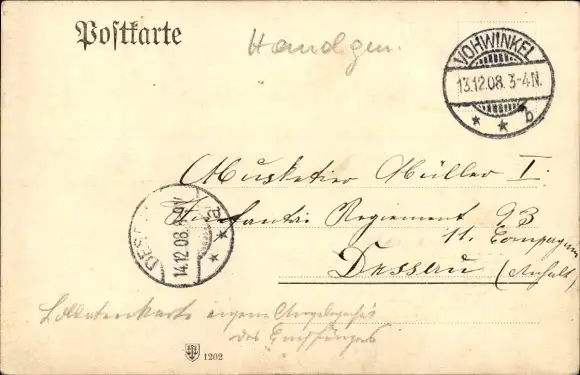 Postkarte
Handgem.
VOHWINKEL
13.12.08. 3-4N.
* * b
Musketier Müller I.
Infantri Regiement 93
11. Compagnie
Dessau (Anhalt)
DESS
14.12.08.
Soldatenkarte eigene Angelegenheit
des Empfängers
1202